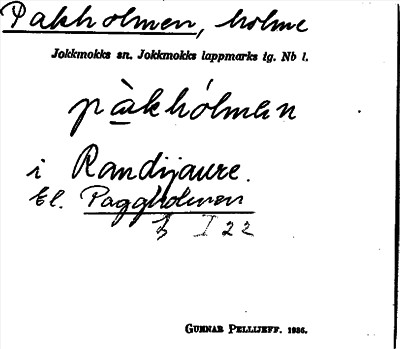 Pakholmen, holme
Jokkmokks sn. Jokkmokks lappmarks tg. Nb l.
pàkhólmən
i Randijaure.
Ek. Paggholmen
I 22
GUNNAR PELLIJEFF. 1956.